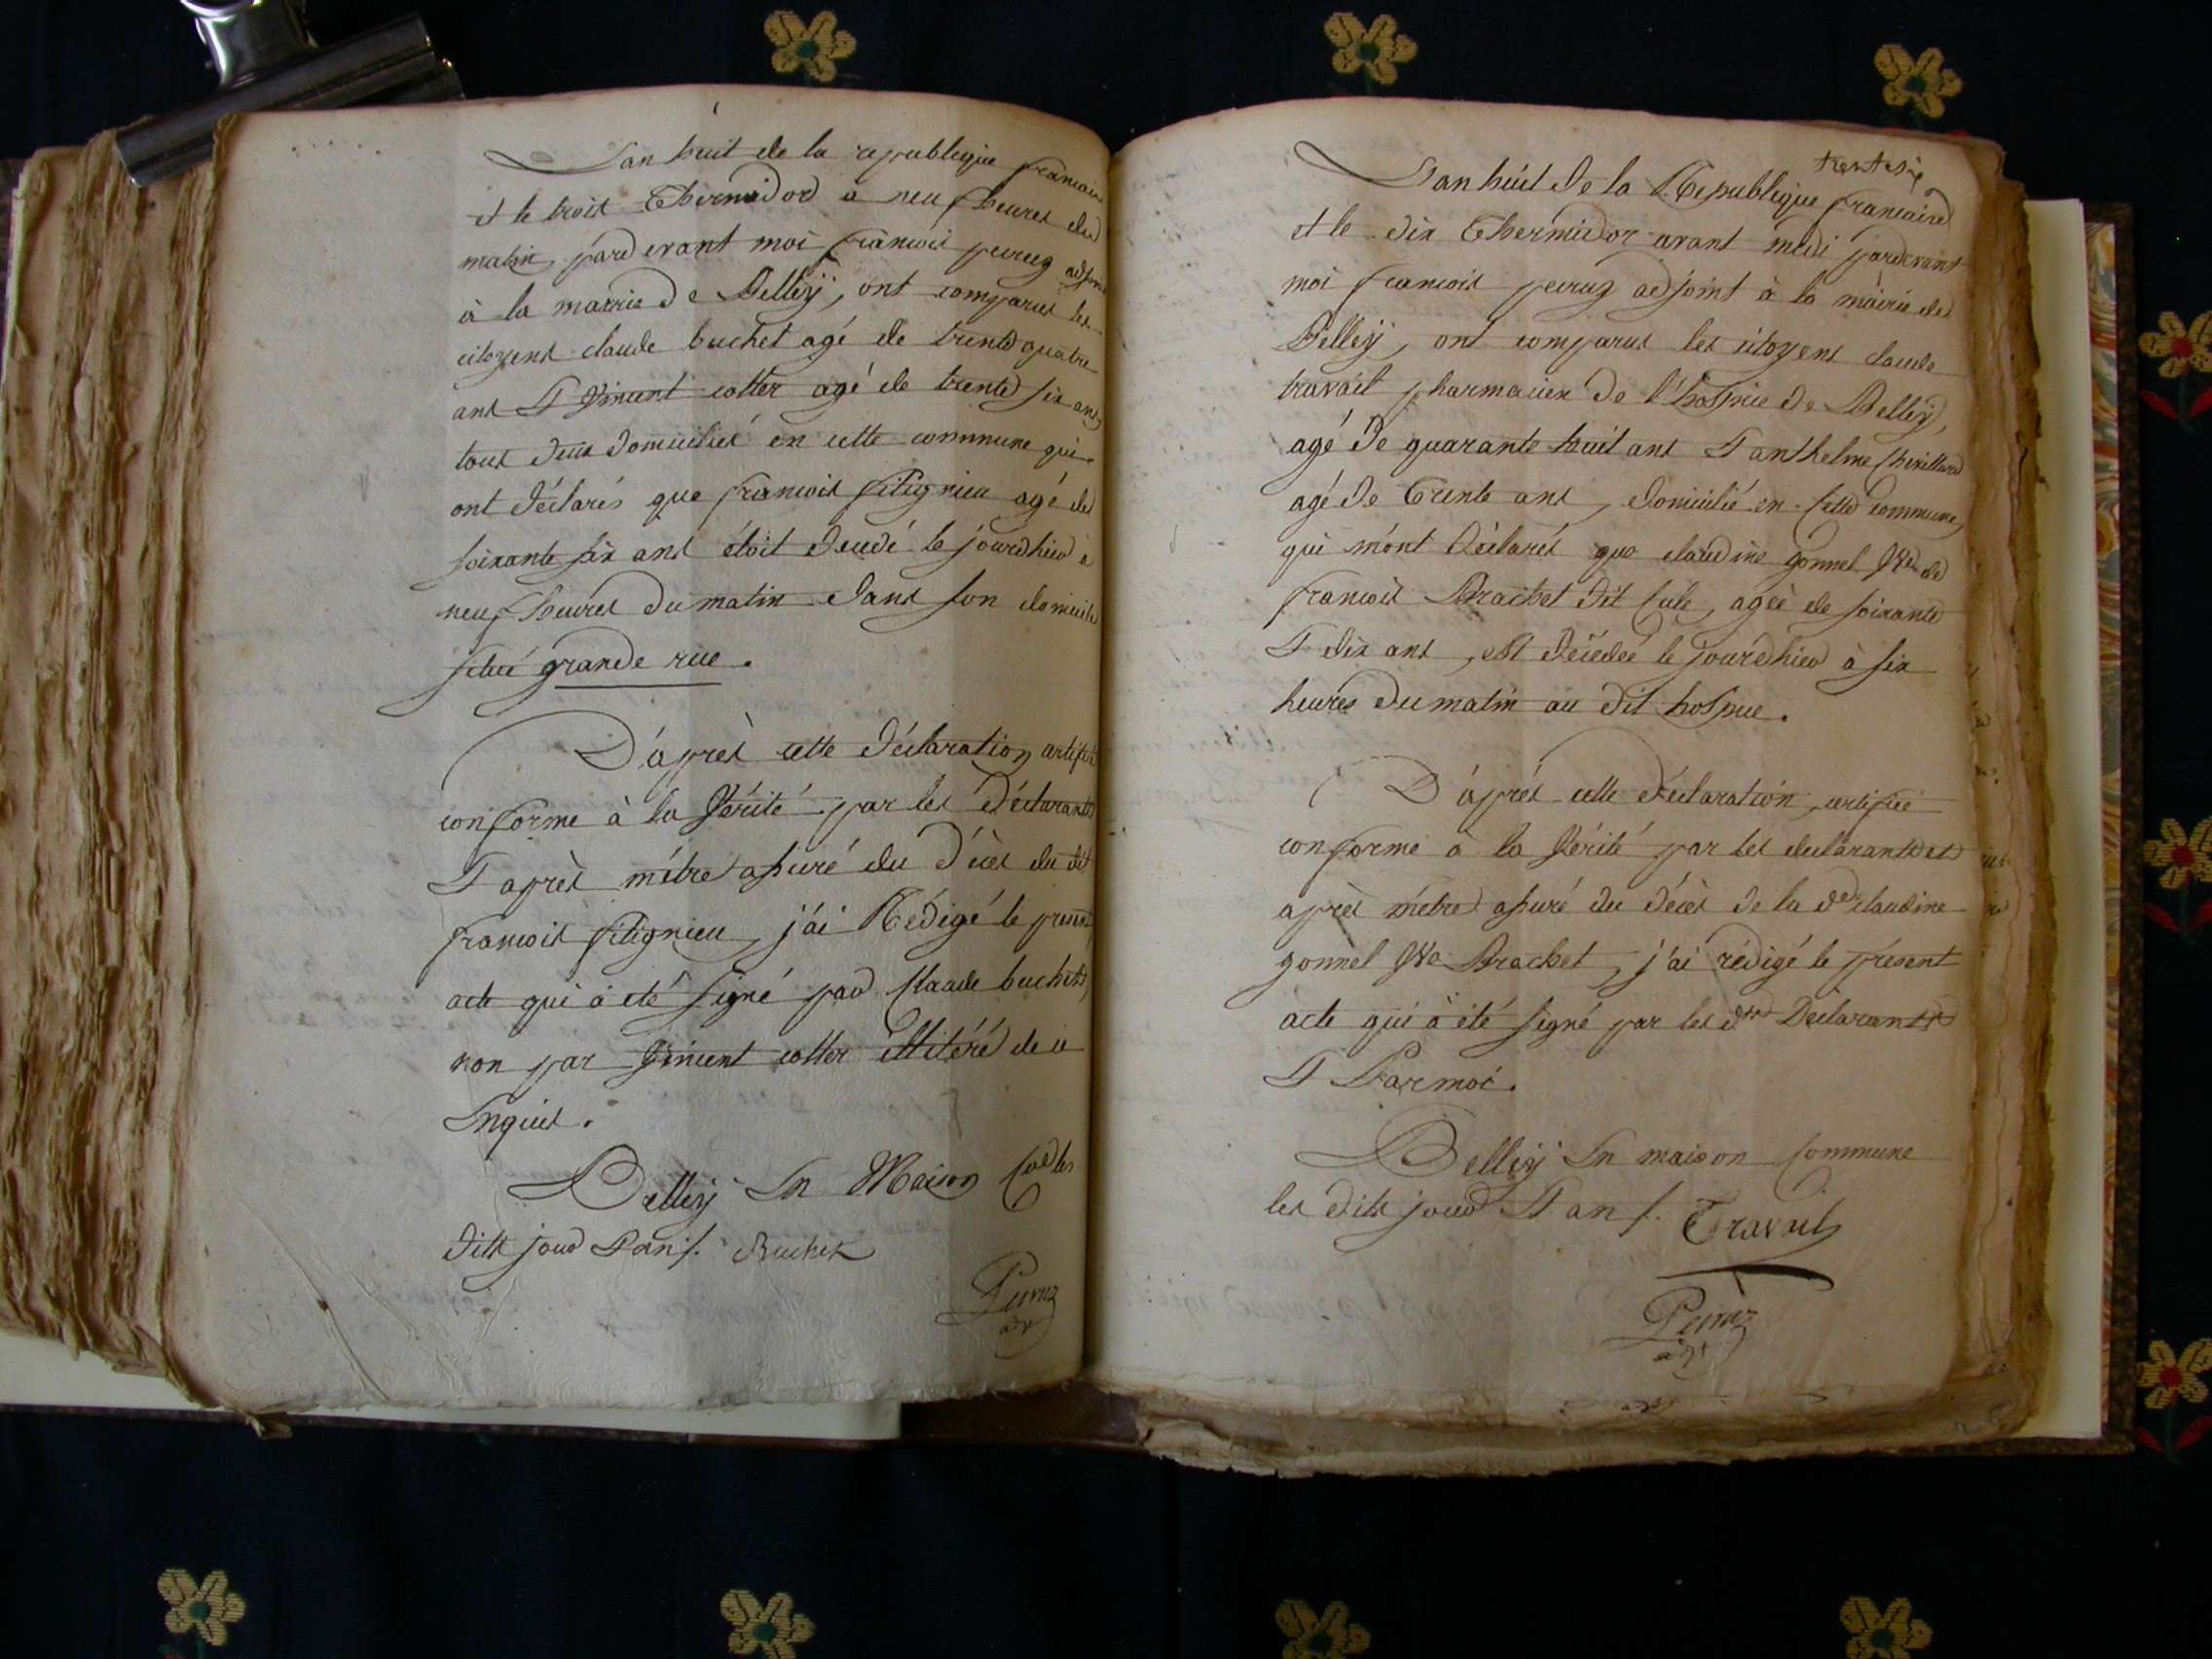 Lan huit de la republique francaise
et le trois Thermidor a neuf heures du
matin, pardevant moi françois peruz adjoint
à la mairie de Belleÿ, ont comparus les
citoyens claude buchet agé de trente quatre
ans & Vincent cotter agé de trente six ans
tous deux domiciliés en cette commune qui
ont déclarés que francois fitignieu agé de
soixante six ans étoit décédé le jourdhieu à
neuf heures du matin dans son domicile
situé grande rue.
D'après cette déclaration certifiée
conforme à la Vérité par les déclarants
& après m'etre assuré du décès du dit
francois fitignieu, j'ai Rédigé le présent
acte qui a été signé par Claude buchet,
non par Vincent cotter illitéré de ce
Enquis.
Belleÿ En Maison Cne les
dits jour & an /. Buchet
Peruz
adj
trente six
Lan huit de la Republique francaise
et le dix Thermidor avant midi pardevant
moi francois peruz adjoint à la mairie de
Belleÿ, ont comparus les citoyens claude
travail pharmacien de l'hospice de Belleÿ,
agé de quarante huit ans & anthelme
agé de trente ans, domicilié en cette commune,
qui m'ont déclarés que claudine gonnel Ve de
francois Brachet dit agée de soixante
& dix ans, est décédée le jourdhieu à six
heures du matin au dit hospice.
D'après cette déclaration, certifiée
conforme à la Vérité par les déclarants et
après m'etre assuré du décès de la de claudine
gonnel Ve Brachet, j'ai rédigé le présent
acte qui a été signé par les dts Déclarants
& Par moi.
Belleÿ En maison Commune
les dits jour & an /. Travail
Peruz
adjt